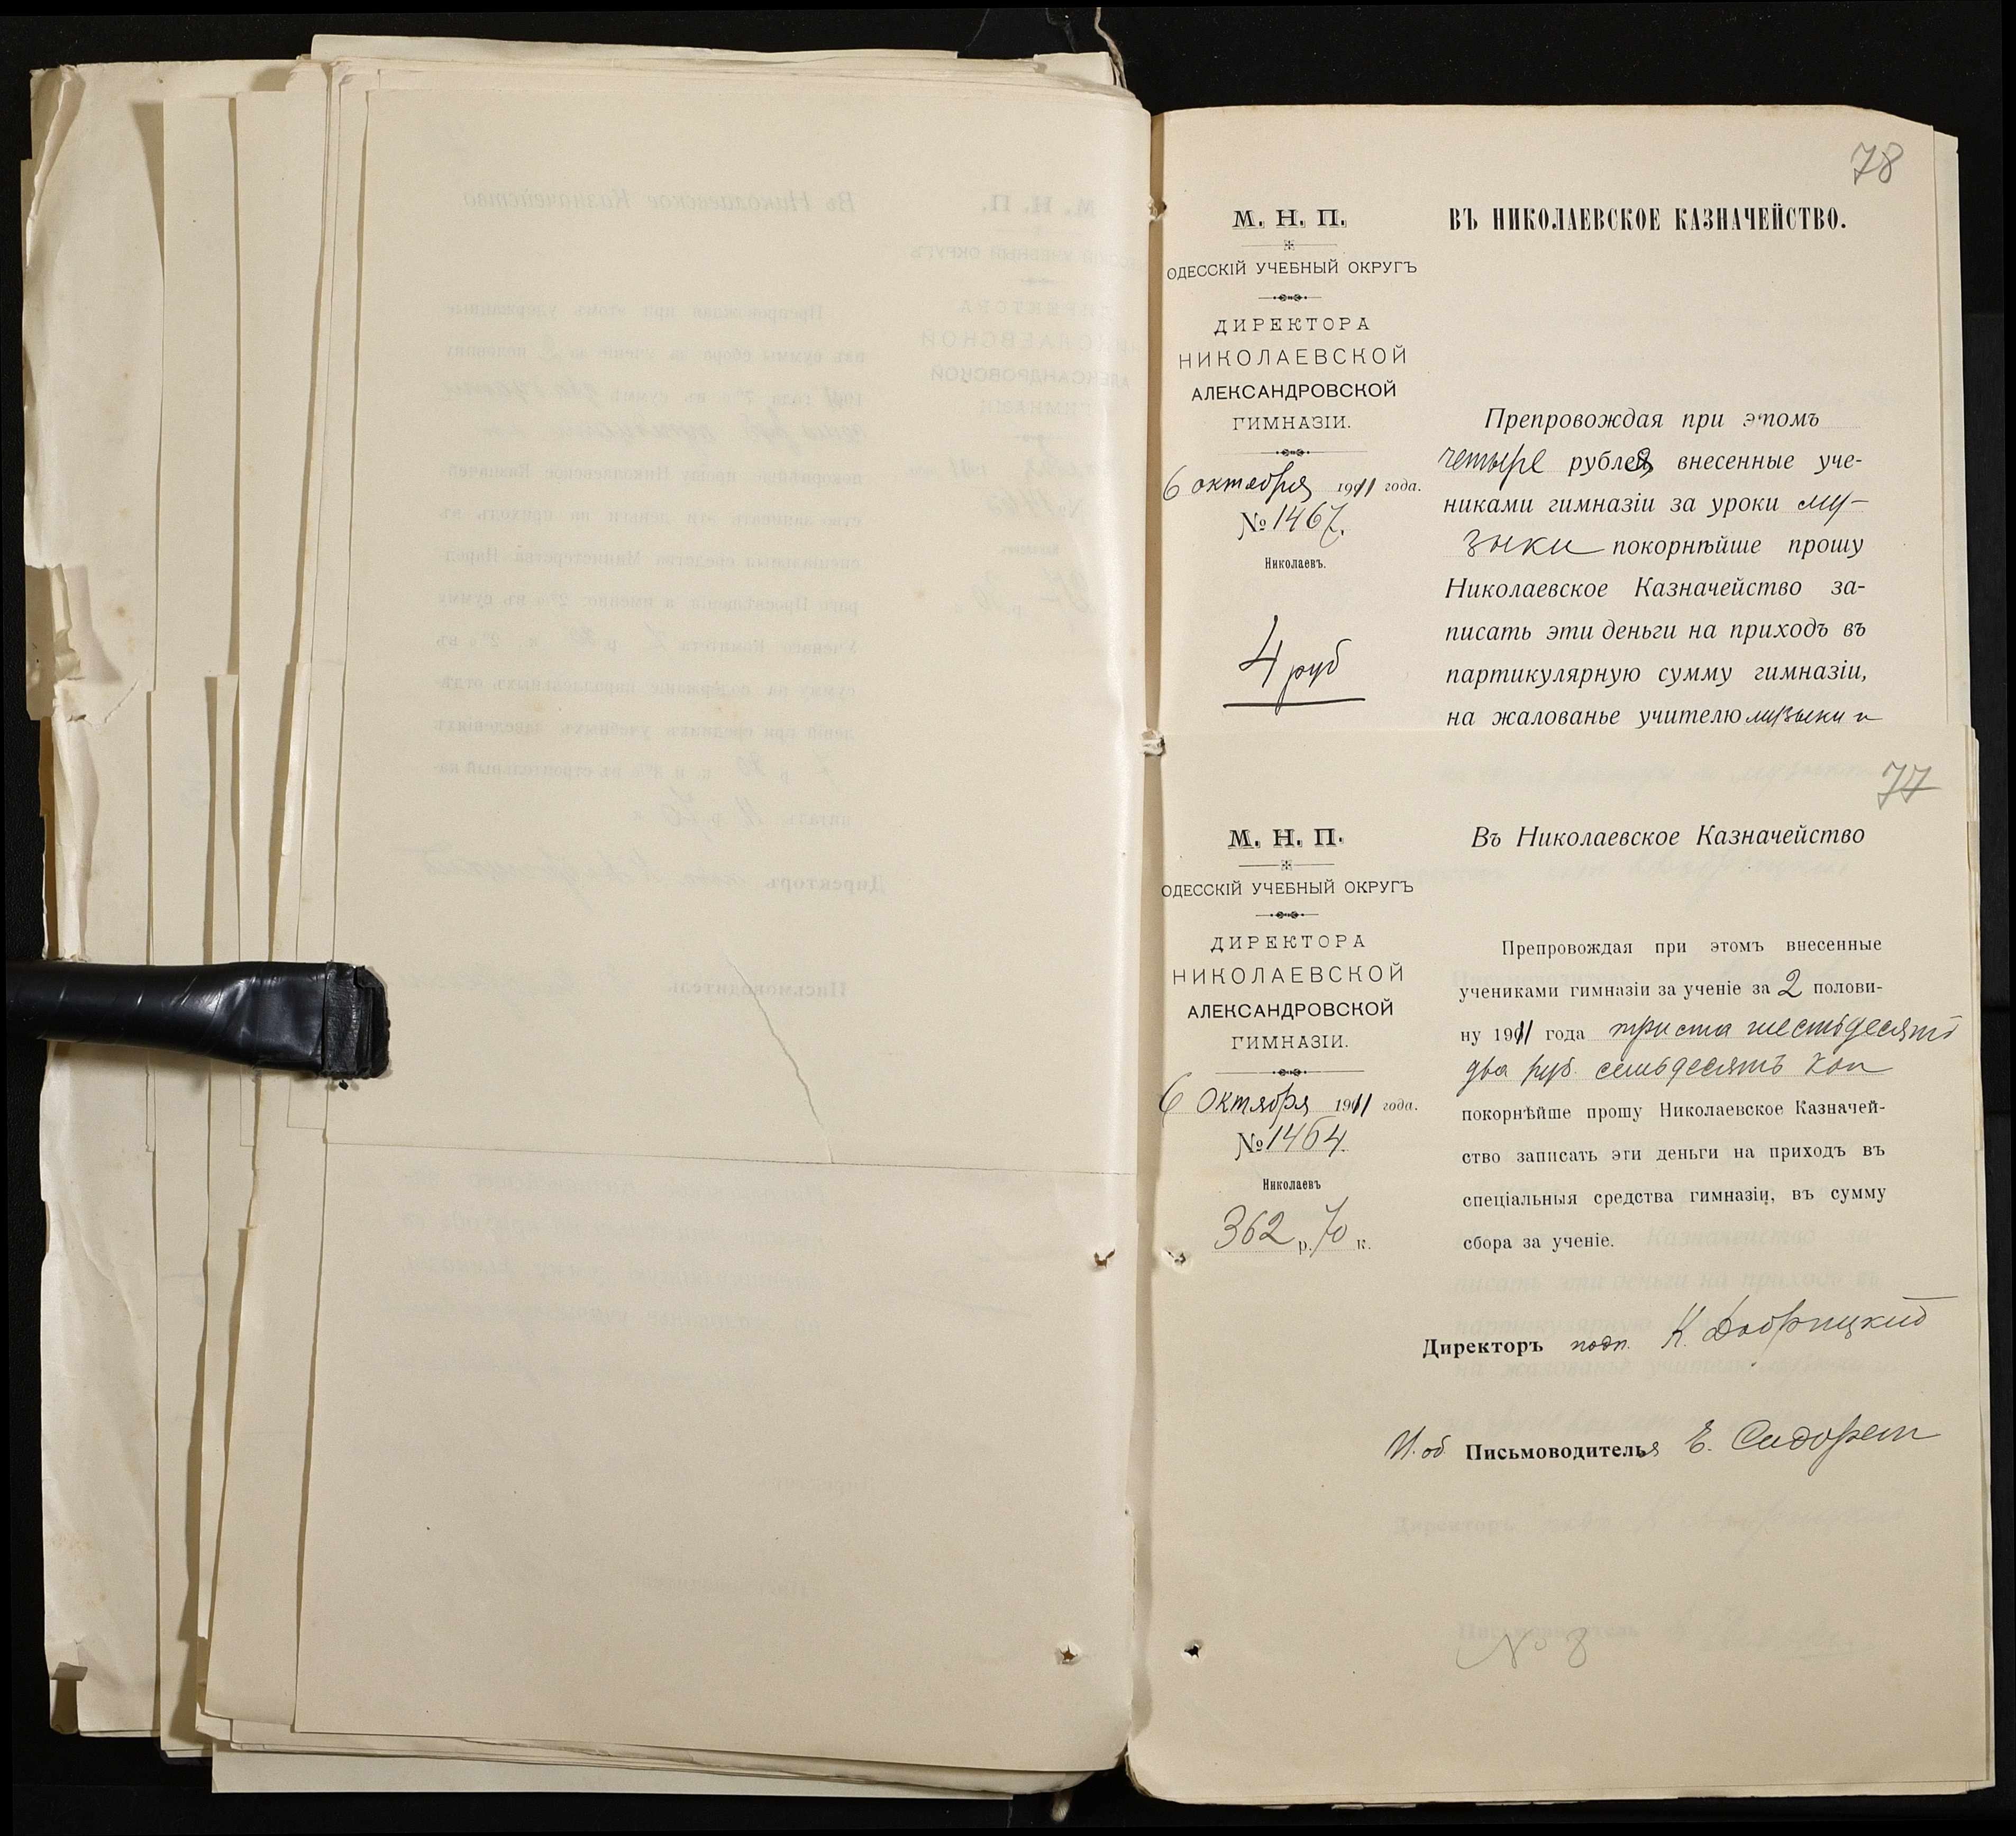 78
М. Н. П.
ОДЕССКІЙ УЧЕБНЫЙ ОКРУГЪ
ДИРЕКТОРА
НИКОЛАЕВСКОЙ
АЛЕКСАНДРОВСКОЙ
ГИМНАЗІИ.
6 октября 1911 года.
№ 1467.
Николаевъ.
4 руб
ВЪ НИКОЛАЕВСКОЕ КАЗНАЧЕЙСТВО.
Препровождая при этомъ
четыре рубля внесенные уче-
никами гимназіи за уроки му-
зыки покорнѣйше прошу
Николаевское Казначейство за-
писать эти деньги на приходъ въ
партикулярную сумму гимназіи,
на жалованье учителю музыки и
77
М. Н. П.
ОДЕССКІЙ УЧЕБНЫЙ ОКРУГЪ
ДИРЕКТОРА
НИКОЛАЕВСКОЙ
АЛЕКСАНДРОВСКОЙ
ГИМНАЗІИ.
6 Октября 1911 года.
№ 1464.
Николаевъ
362 р. 70 к.
Въ Николаевское Казначейство
Препровождая при этомъ внесенные
учениками гимназіи за ученіе за 2 полови-
ну 1911 года триста шестьдесятъ
два руб. семьдесятъ коп
покорнѣйше прошу Николаевское Казначей-
ство записать эти деньги на приходъ въ
спеціальныя средства гимназіи, въ сумму
сбора за ученіе.
Директоръ подп. К.
И. об Письмоводителя Е.
№ 8